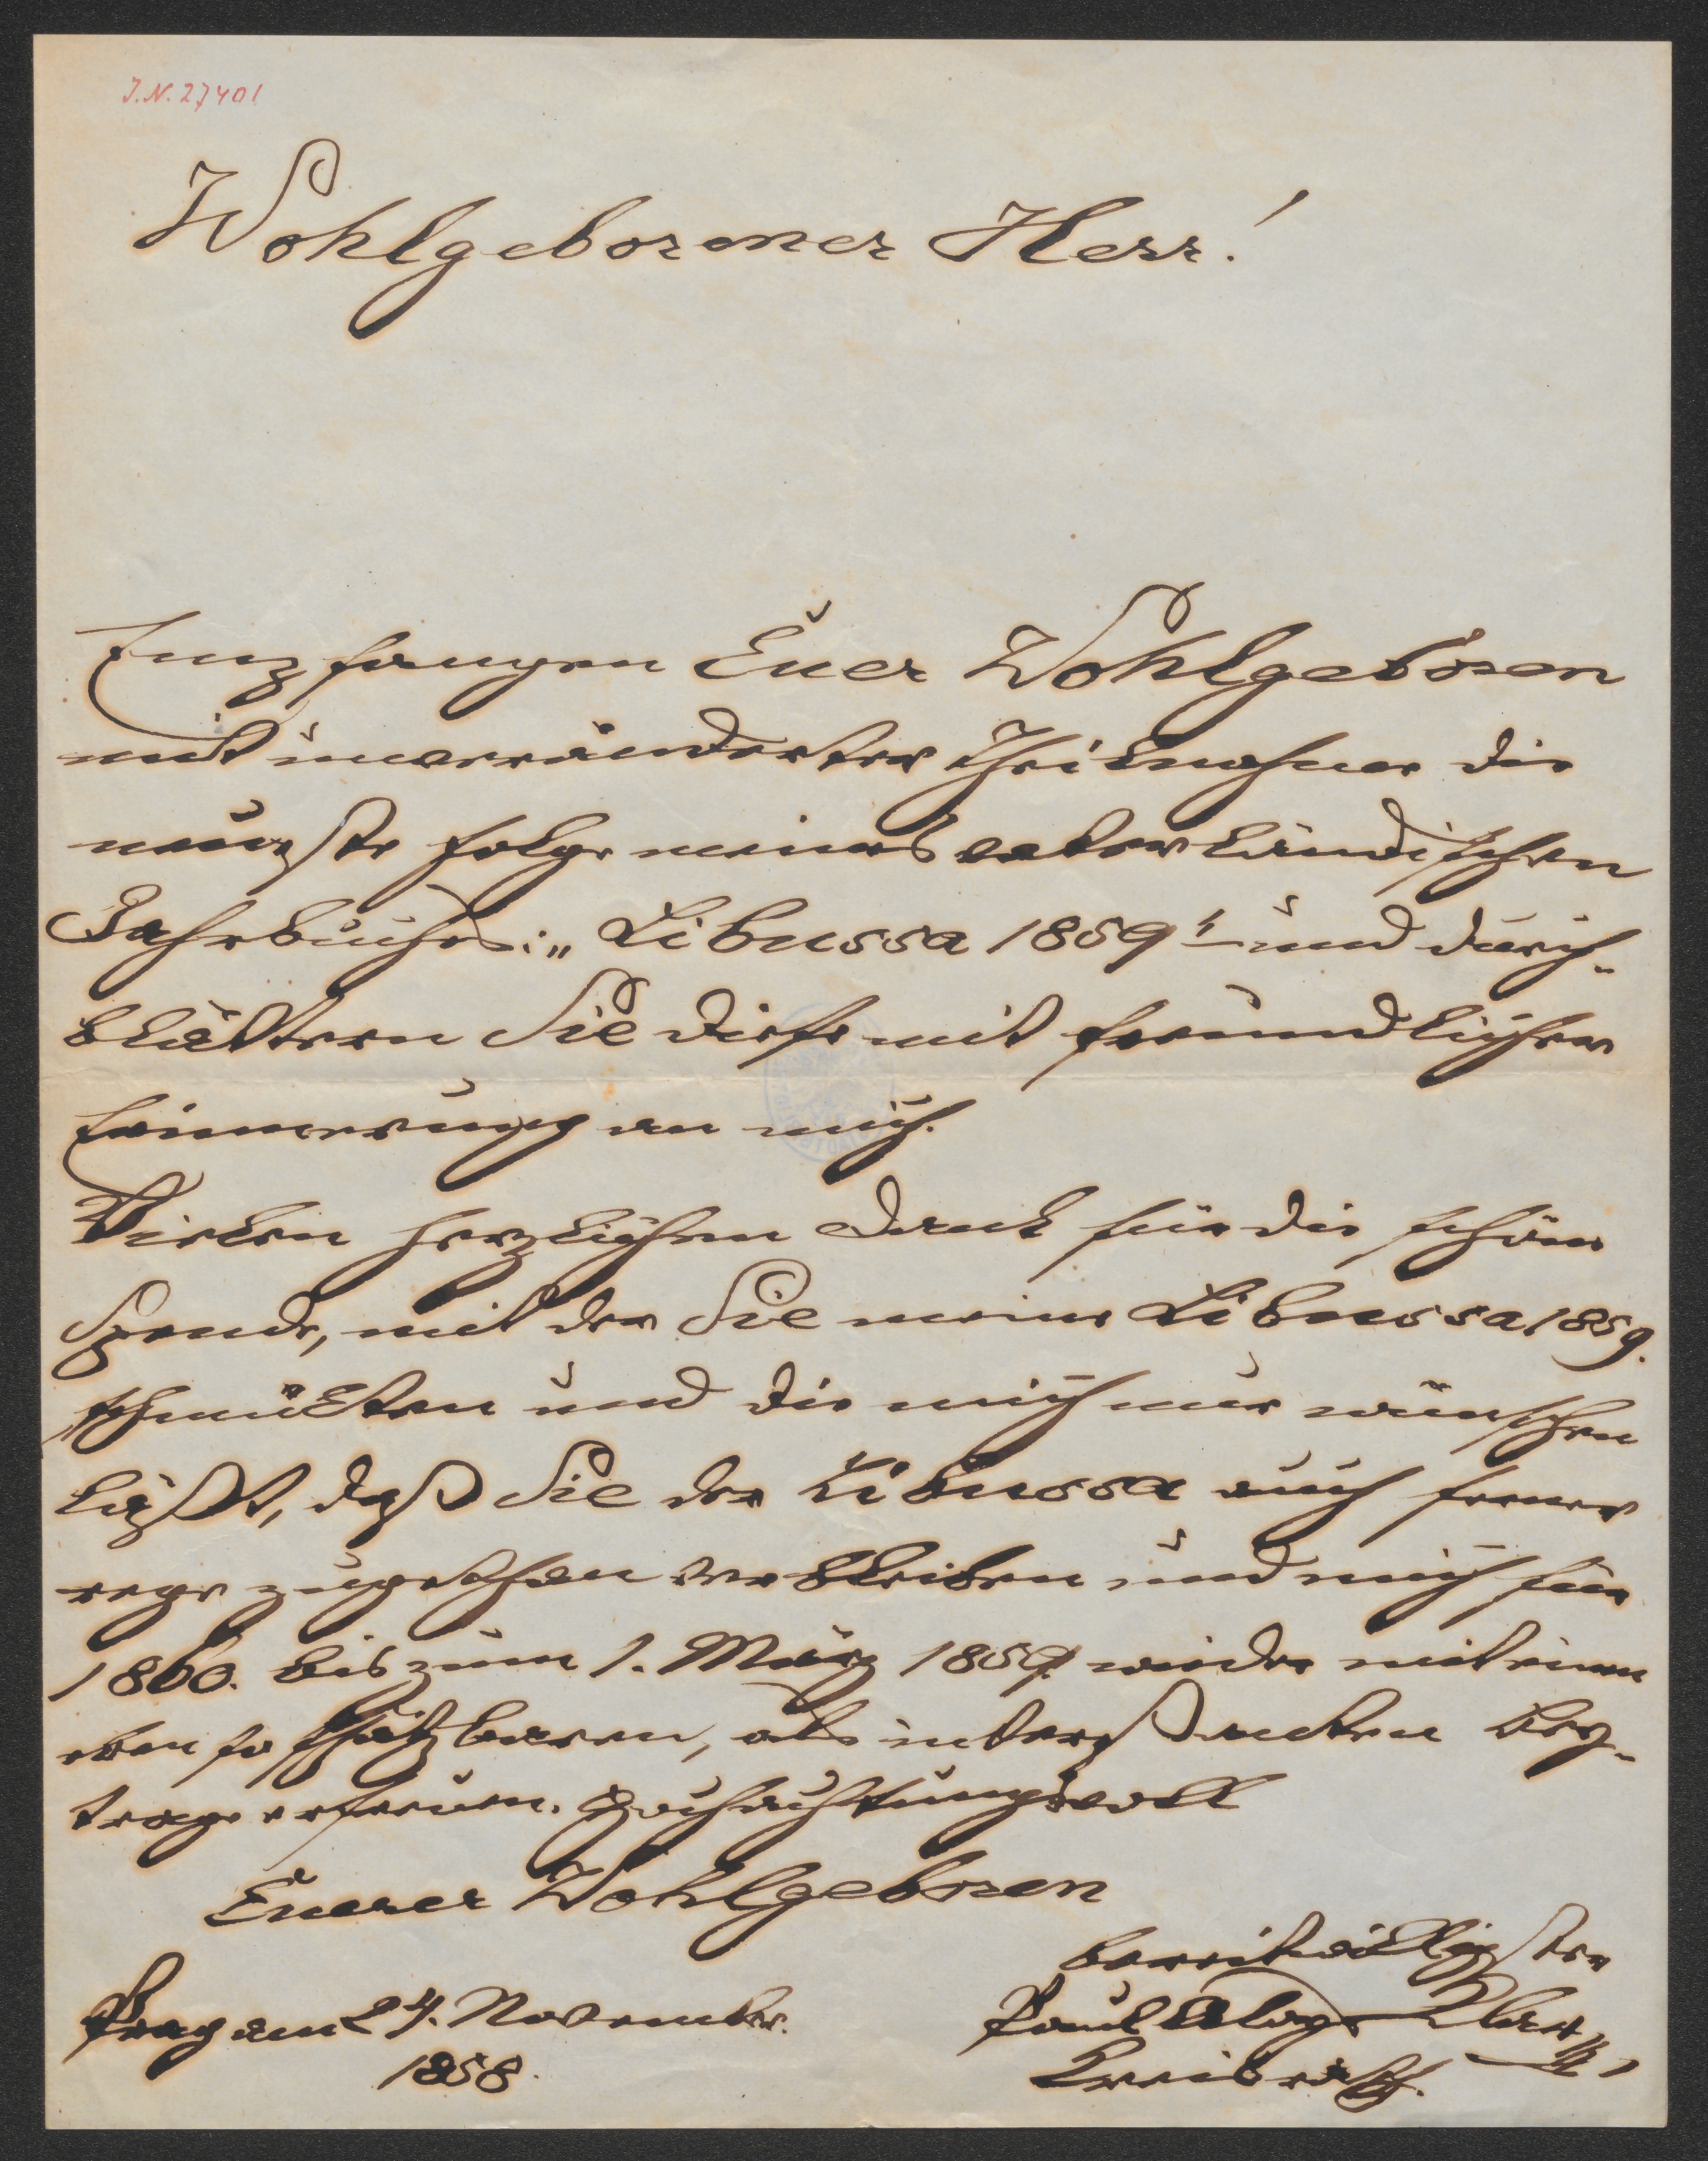 J.N. 27401
Wohlgeborener Herr!
Empfangen Euer Wohlgeboren
mit unveränderter Theilnahme die
neueste Folge meines vaterländischen
Jahrbuches: „Libussa 1859" und durch-
blättern Sie diese mit freundlicher
Erinnerung an mich.
Vielen herzlichen Dank für die schöne
Spende, mit der Sie meine Libussa 1859.
schmückten und die mich nur wünschen
läßt, daß Sie der Libussa auch ferner
rege zugethan verbleiben und mich für
1860. bis zum 1. März 1859. wieder mit einem
eben so schätzbaren, als interessanten Bey-
trage erfreuen. Hochachtungsvoll
Euerer Wohlgeboren
bereitwilligster
Prag am 24. November.
1858.
Paul Aloys Klar
Kreisrath.